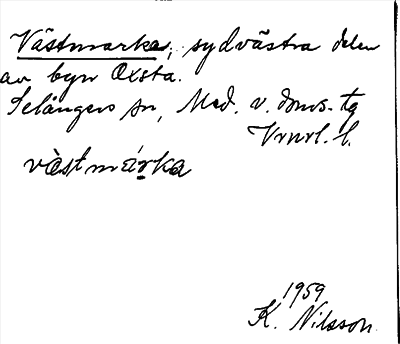 Västmarka, sydvästra delen
av byn Öxsta.
Selångers sn, Med. v. doms. tg
Vrnrl. l.
västmarka
1959
K. Nilsson